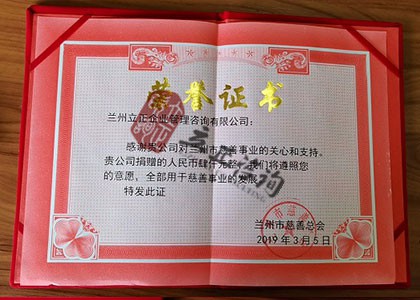 荣誉证书
兰州立正企业管理咨询有限公司：
感谢贵公司对兰州市慈善事业的关心和支持。
贵公司捐赠的人民币肆仟元整，我们将遵照您
的意愿，全部用于慈善事业的发展。
特发此证
兰州市慈善总会
2019年3月5日